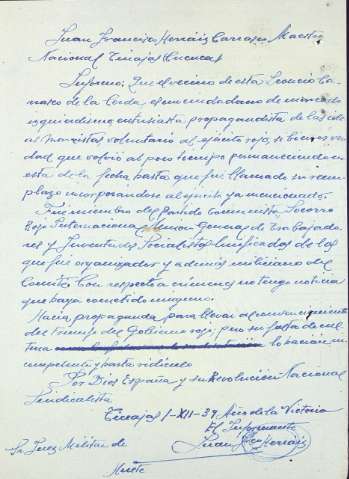 Juan Francisco Herráiz Carrasco Maestro
Nacional Tinajas (Cuenca)
Informo: Que el vecino de esta Leoncio Ca-
rrasco de la Cerda, es un ciudadano de marcado
izquierdismo entusiasta propagandista de las ide-
as Marxistas voluntario al ejército rojo, si bien es ver-
dad que volvió al poco tiempo permaneciendo en
esta de la fecha hasta que fue llamado su reem-
plazo incorporándose al ejército ya mencionado.
Fué miembro del Partido Comunista, Socorro
Rojo Internacional, Unión General de Trabajado-
res y Juventudes Socialistas Unificadas de las
que fué organizador y además miliciano del
Comité. Con respecto a crímenes no tengo noticia
que haya cometido ninguno.
Hacía propaganda para llevar al convencimiento
del triunfo del Gobierno rojo, pero su falta de cul-
tura lo hacían in-
competente y hasta ridículo
Por Dios España y su Revolución Nacional
Sindicalista
Tinajas 1-XII-39 Año de la Victoria
El Informante
Juan Fco Herráiz
Sr. Juez Militar de
Huete